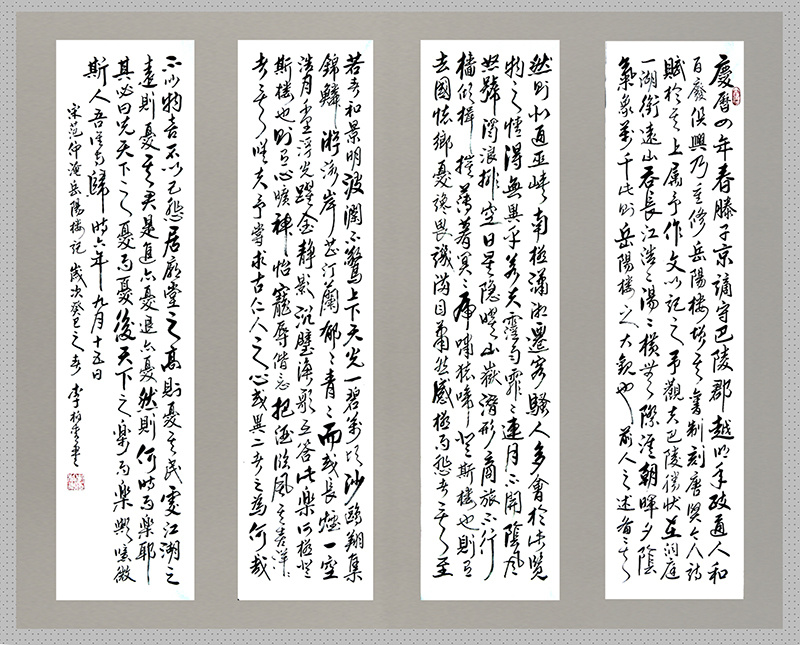 慶曆四年春滕子京謫守巴陵郡越明年政通人和
百廢俱興乃重修岳陽樓增其舊制刻唐賢今人詩
賦於其上屬予作文以記之予觀夫巴陵勝狀在洞庭
一湖銜遠山吞長江浩〻湯〻橫無際涯朝暉夕陰
氣象萬千此則岳陽樓之大觀也前人之述備矣
然則北通巫峽南極瀟湘遷客騷人多會於此覽
物之情得無異乎若夫霪雨霏〻連月不開陰風
怒號濁浪排空日星隱曜山嶽潛形商旅不行
檣傾楫摧薄暮冥〻虎嘯猿啼登斯樓也則有
去國懷鄉憂讒畏譏滿目蕭然感極而悲者矣至
若春和景明波瀾不驚上下天光一碧萬頃沙鷗翔集
錦鱗游泳岸芷汀蘭郁〻青〻而或長煙一空
浩月千里浮光躍金靜影沉璧漁歌互答此樂何極登
斯樓也則有心曠神怡寵辱偕忘把酒臨風其喜洋〻
者矣嗟夫予嘗求古仁人之心或異二者之為何哉
不以物喜不以己悲居廟堂之高則憂其民處江湖之
遠則憂其君是進亦憂退亦憂然則何時而樂耶
其必曰先天下之憂而憂後天下之樂而樂歟噫微
斯人吾誰與歸時六年九月十五日
宋范仲淹岳陽樓記 歲次癸巳之春 李柏